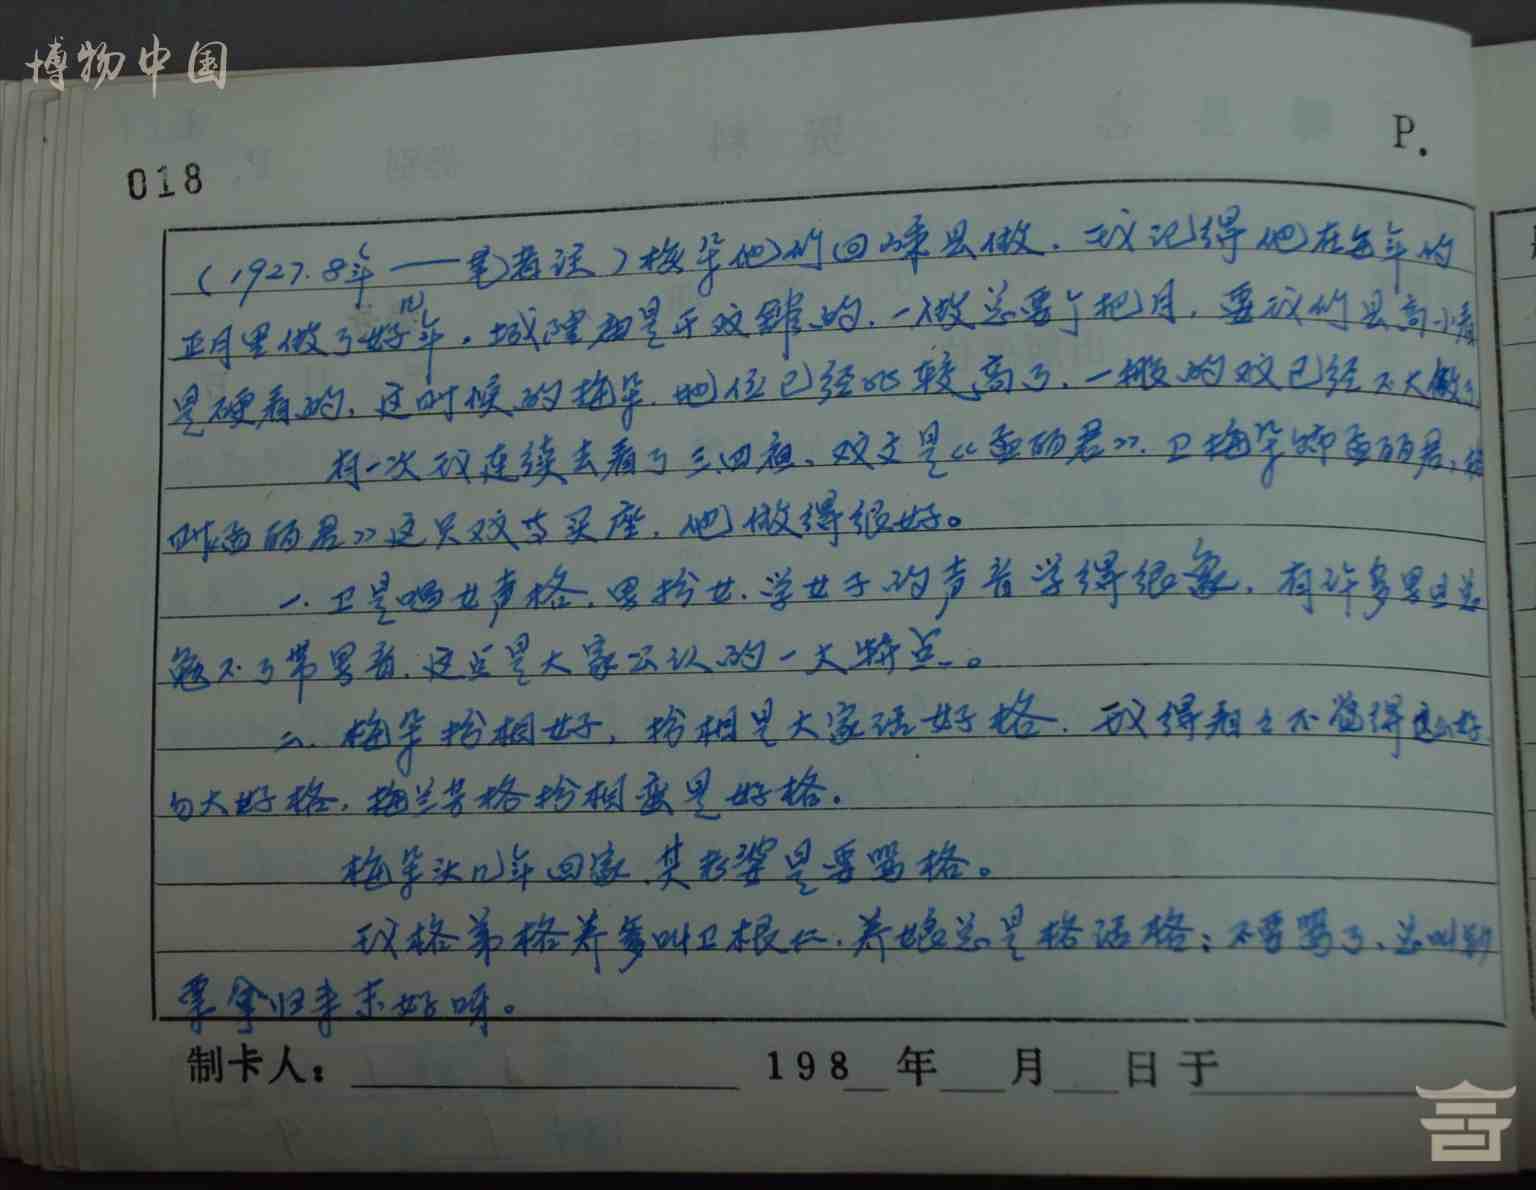 博物中国
018
P.
(1927.8年——笔者注)梅朵他们回嵊县做.我记得他在每年的
正月里做了好几年.城隍庙是干戏馆的.一做总要个把月,要议们县高小看
是硬看的,这时候的梅朵.地位已经比较高了.一般的戏已经不大做了
有一次我连续去看了三四夜,戏文是《孟丽君》.卫梅朵饰孟丽君,
叫孟丽君》这只戏专卖座,他做得很好。
一.卫是唱女声格,男扮女.学女子的声音学得很象,有许多男旦总
免不了带男音.这点是大家公认的一大特点。
二.梅朵扮相好,扮相是大家话好格.我得看看不觉得这么好
勿大好格,梅兰芳格扮相蛮是好格.
梅朵头几年回家,其老婆是要骂格。
我格弟格养爹叫卫根仁.养娘总是格话格;不要骂了,总叫
要拿归来末好呀。
制卡人:
198 年 月 日于